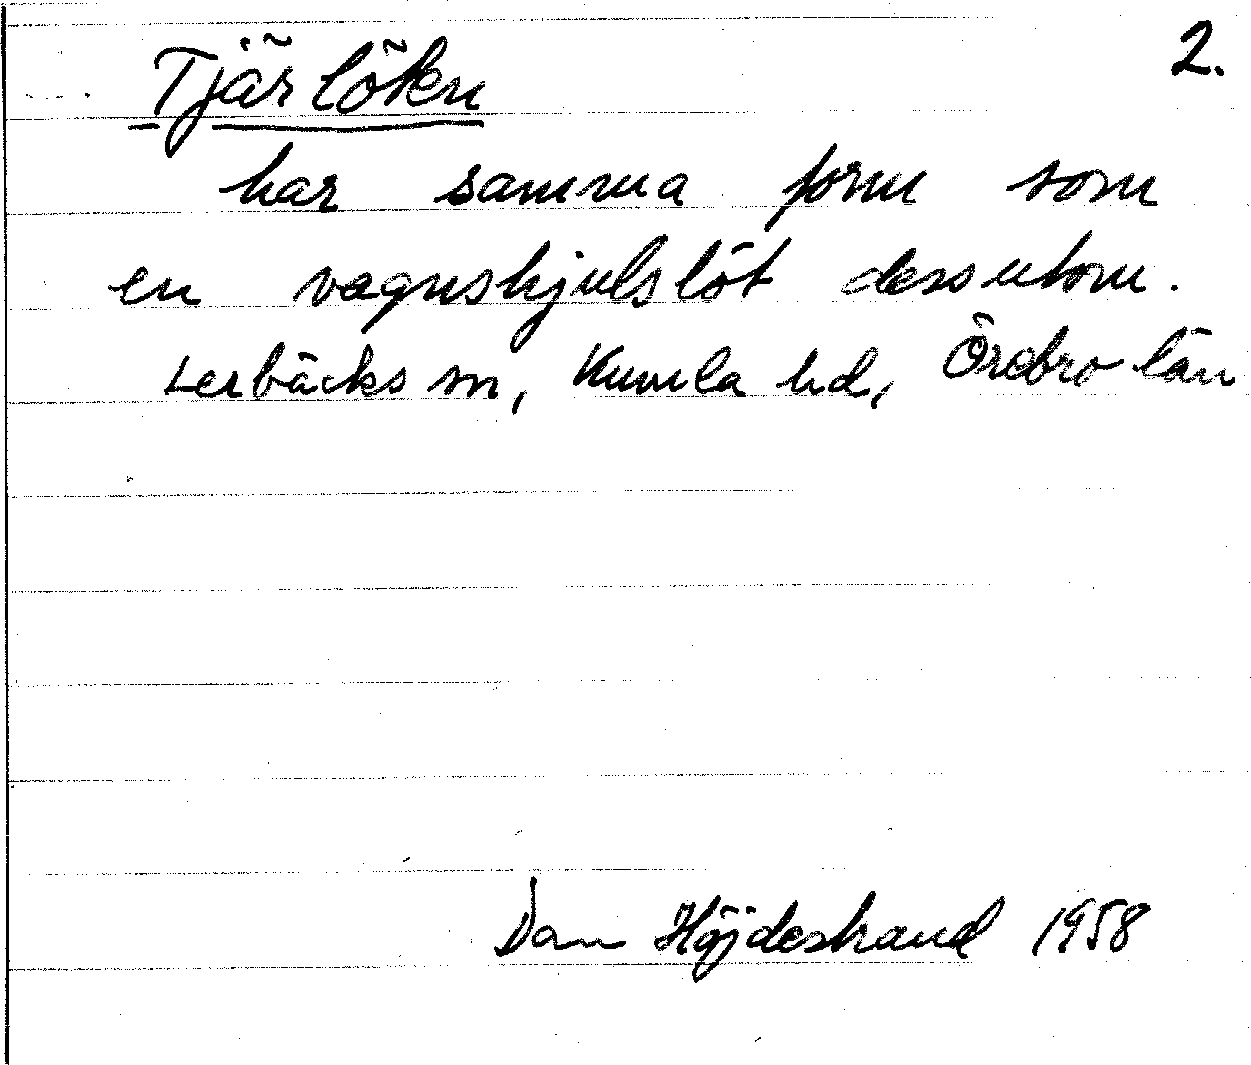 2.
Tjärlöken
har samma form som
en vagnshjulslöt dessutom.
Lerbäcks sn, Kumla hd, Örebro län
Dan Höjdestrand 1958